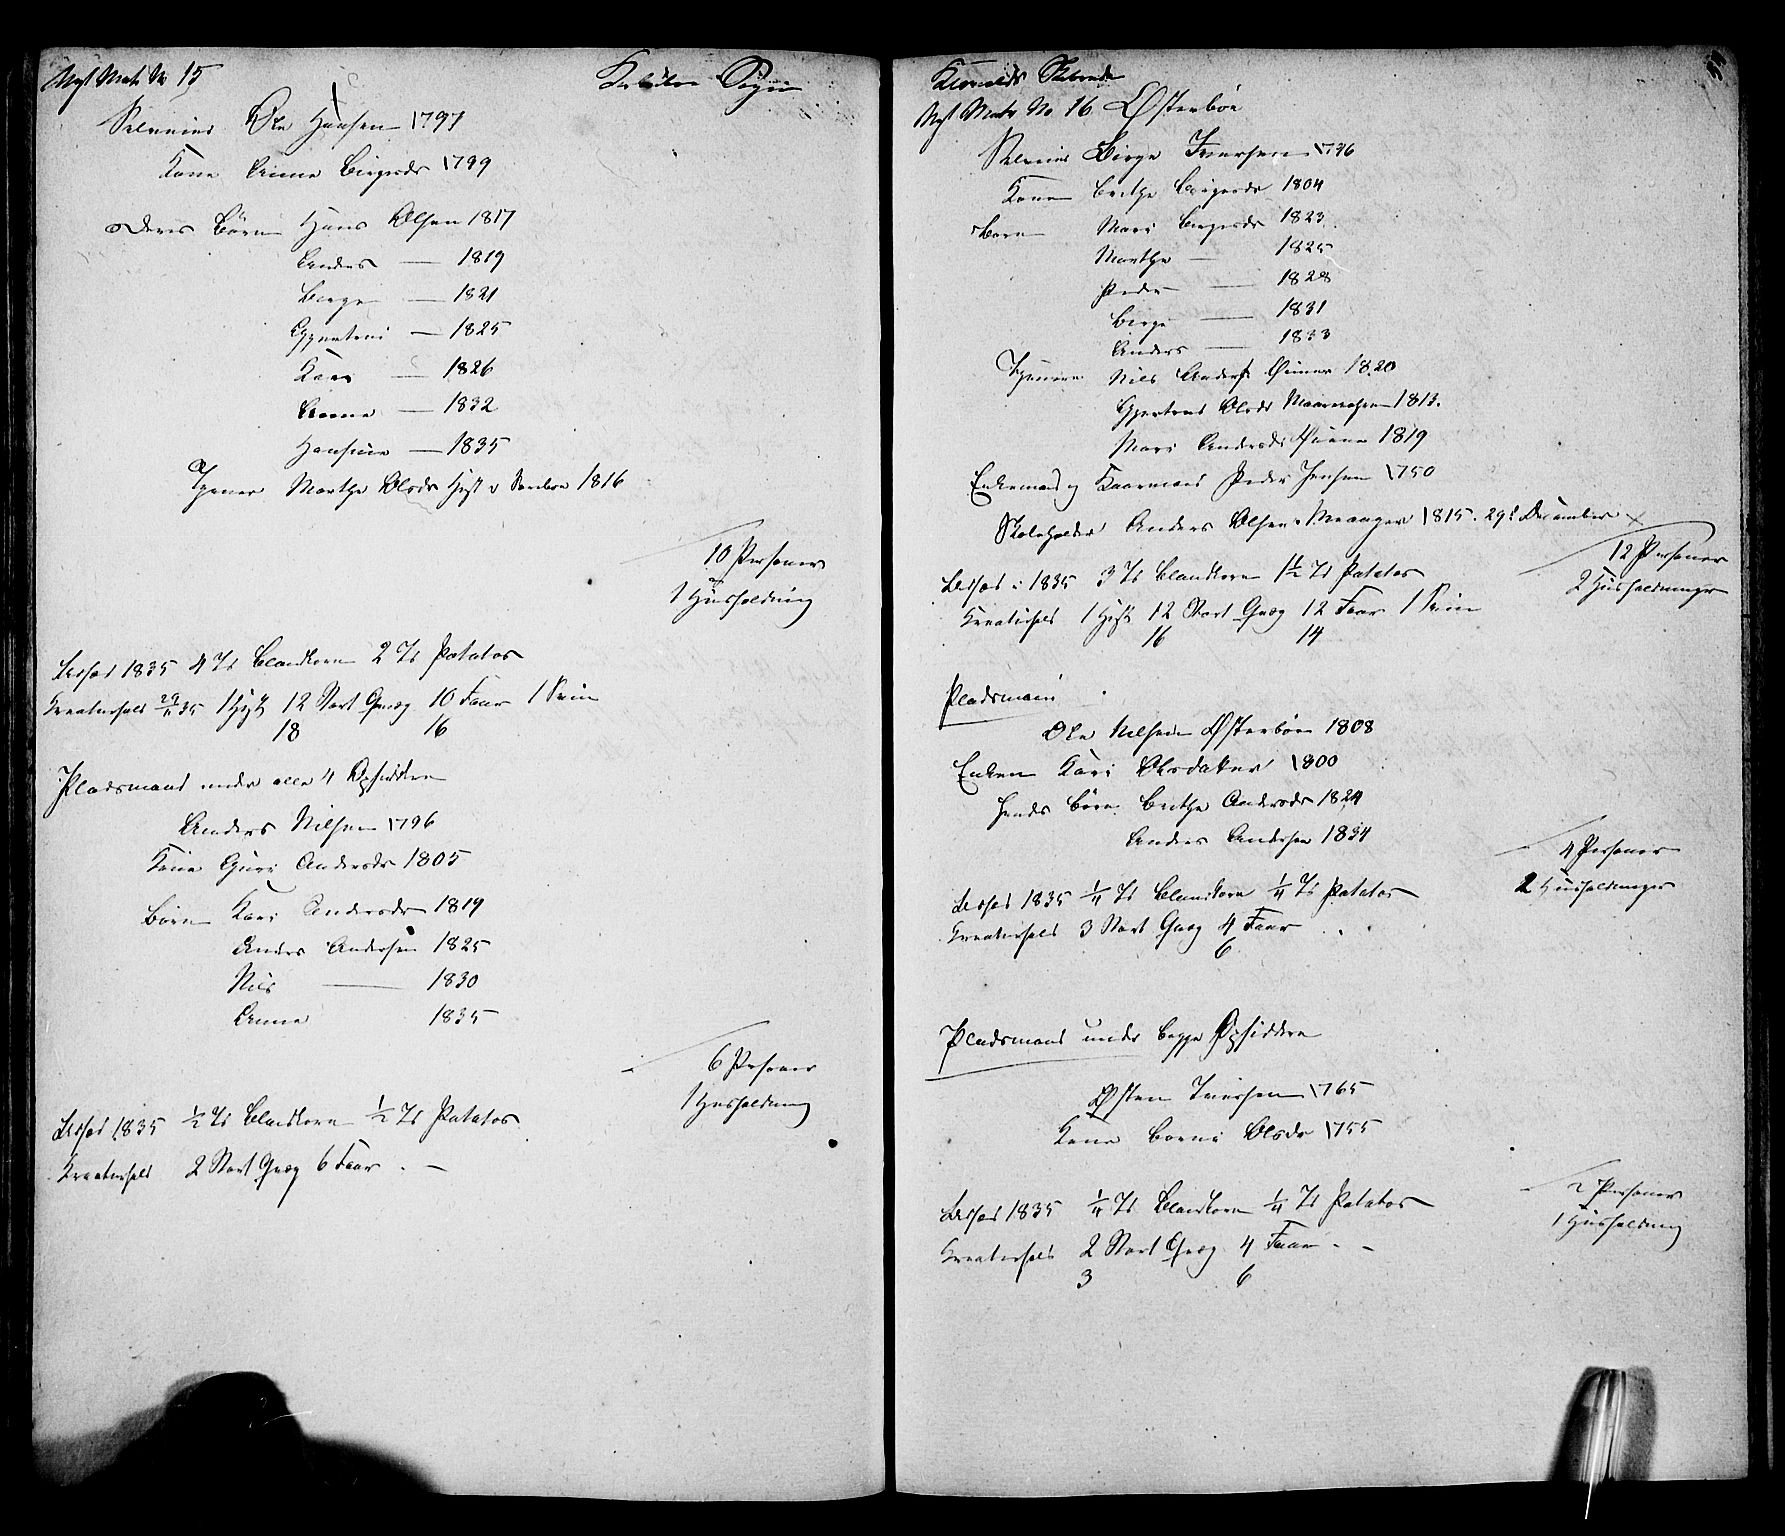 Nyt Mat: No 15
Sogn
Selveier Ole Hansen 1797
Kone Anna Birgesdr 1799
Deres Børn Hans Olsen 1817
Anders — 1819
Birge — 1821
Gjertrui — 1825
Kari — 1826
Anna — 1832
Hansine — 1835
Tjener Marthe Olsdr 1816
10 Personer
1 Huusholdning
Udsæd 1835 4 Td Blandkorn 2 Td Potatos
Kreaturhold 29/11 35 1 Hest 12 Stort Qvæg 10 Faar 1 Sviin
18 16
Pladsmand under alle 4 Opsiddere
Anders Nilsen 1796
Kone Guri Andersdr 1805
Børn Kari Andersdr 1819
Anders Andersen 1825
Nils — 1830
Anna 1835
6 Personer
1 Huusholdning
Udsæd 1835 1/2 Td Blandkorn 1/2 Td Potatos
Kreaturhold 2 Stort Qvæg 6 Faar . —
Skibrede
Nyt Matr No 16 Østerbøe
Selveier Birge Iversen 1796
Kone Brithe Birgesdr 1804
Børn Mari Birgesdr 1823
Marthe — 1825
Peder — 1828
Birge — 1831
Anders — 1833
Tjenere Nils Anders: 1820
Gjertrud Olsdr 1813.
Mari Andersdr 1819
Enkemand og Kaarmand Peder Jensen 1750
Skoleholder Anders Olsen 1815. 29d December
12 Personer
2 Huusholdninger
Udsæd i 1835 3 Td Blandkorn 1 1/2 Td Potatos
Kreaturhold 1 Hest 12 Stort Qvæg 12 Faar 1 Sviin
16 14
Pladsmænd
Ole Nilsen Østerbøe 1808
Enken Kari Olsdatter 1800
Hendes Børn Brithe Andersdr 1824
Anders Andersen 1834
4 Personer
2 Huusholdninger
Udsæd 1835 1/4 Td Blandkorn 1/4 Td Potatos
Kreaturhold 3 Stort Qvæg 4 Faar . .
6
Pladsmand under begge Opsiddere
Østen Iversen 1765
Kone Borni Olsdr 1755
2 Personer
1 Huusholdning
Udsæd 1835 1/4 Td Blandkorn 1/4 Td Potatos
Kreaturhold 2 Stort Qvæg 4 Faar - -
3 6